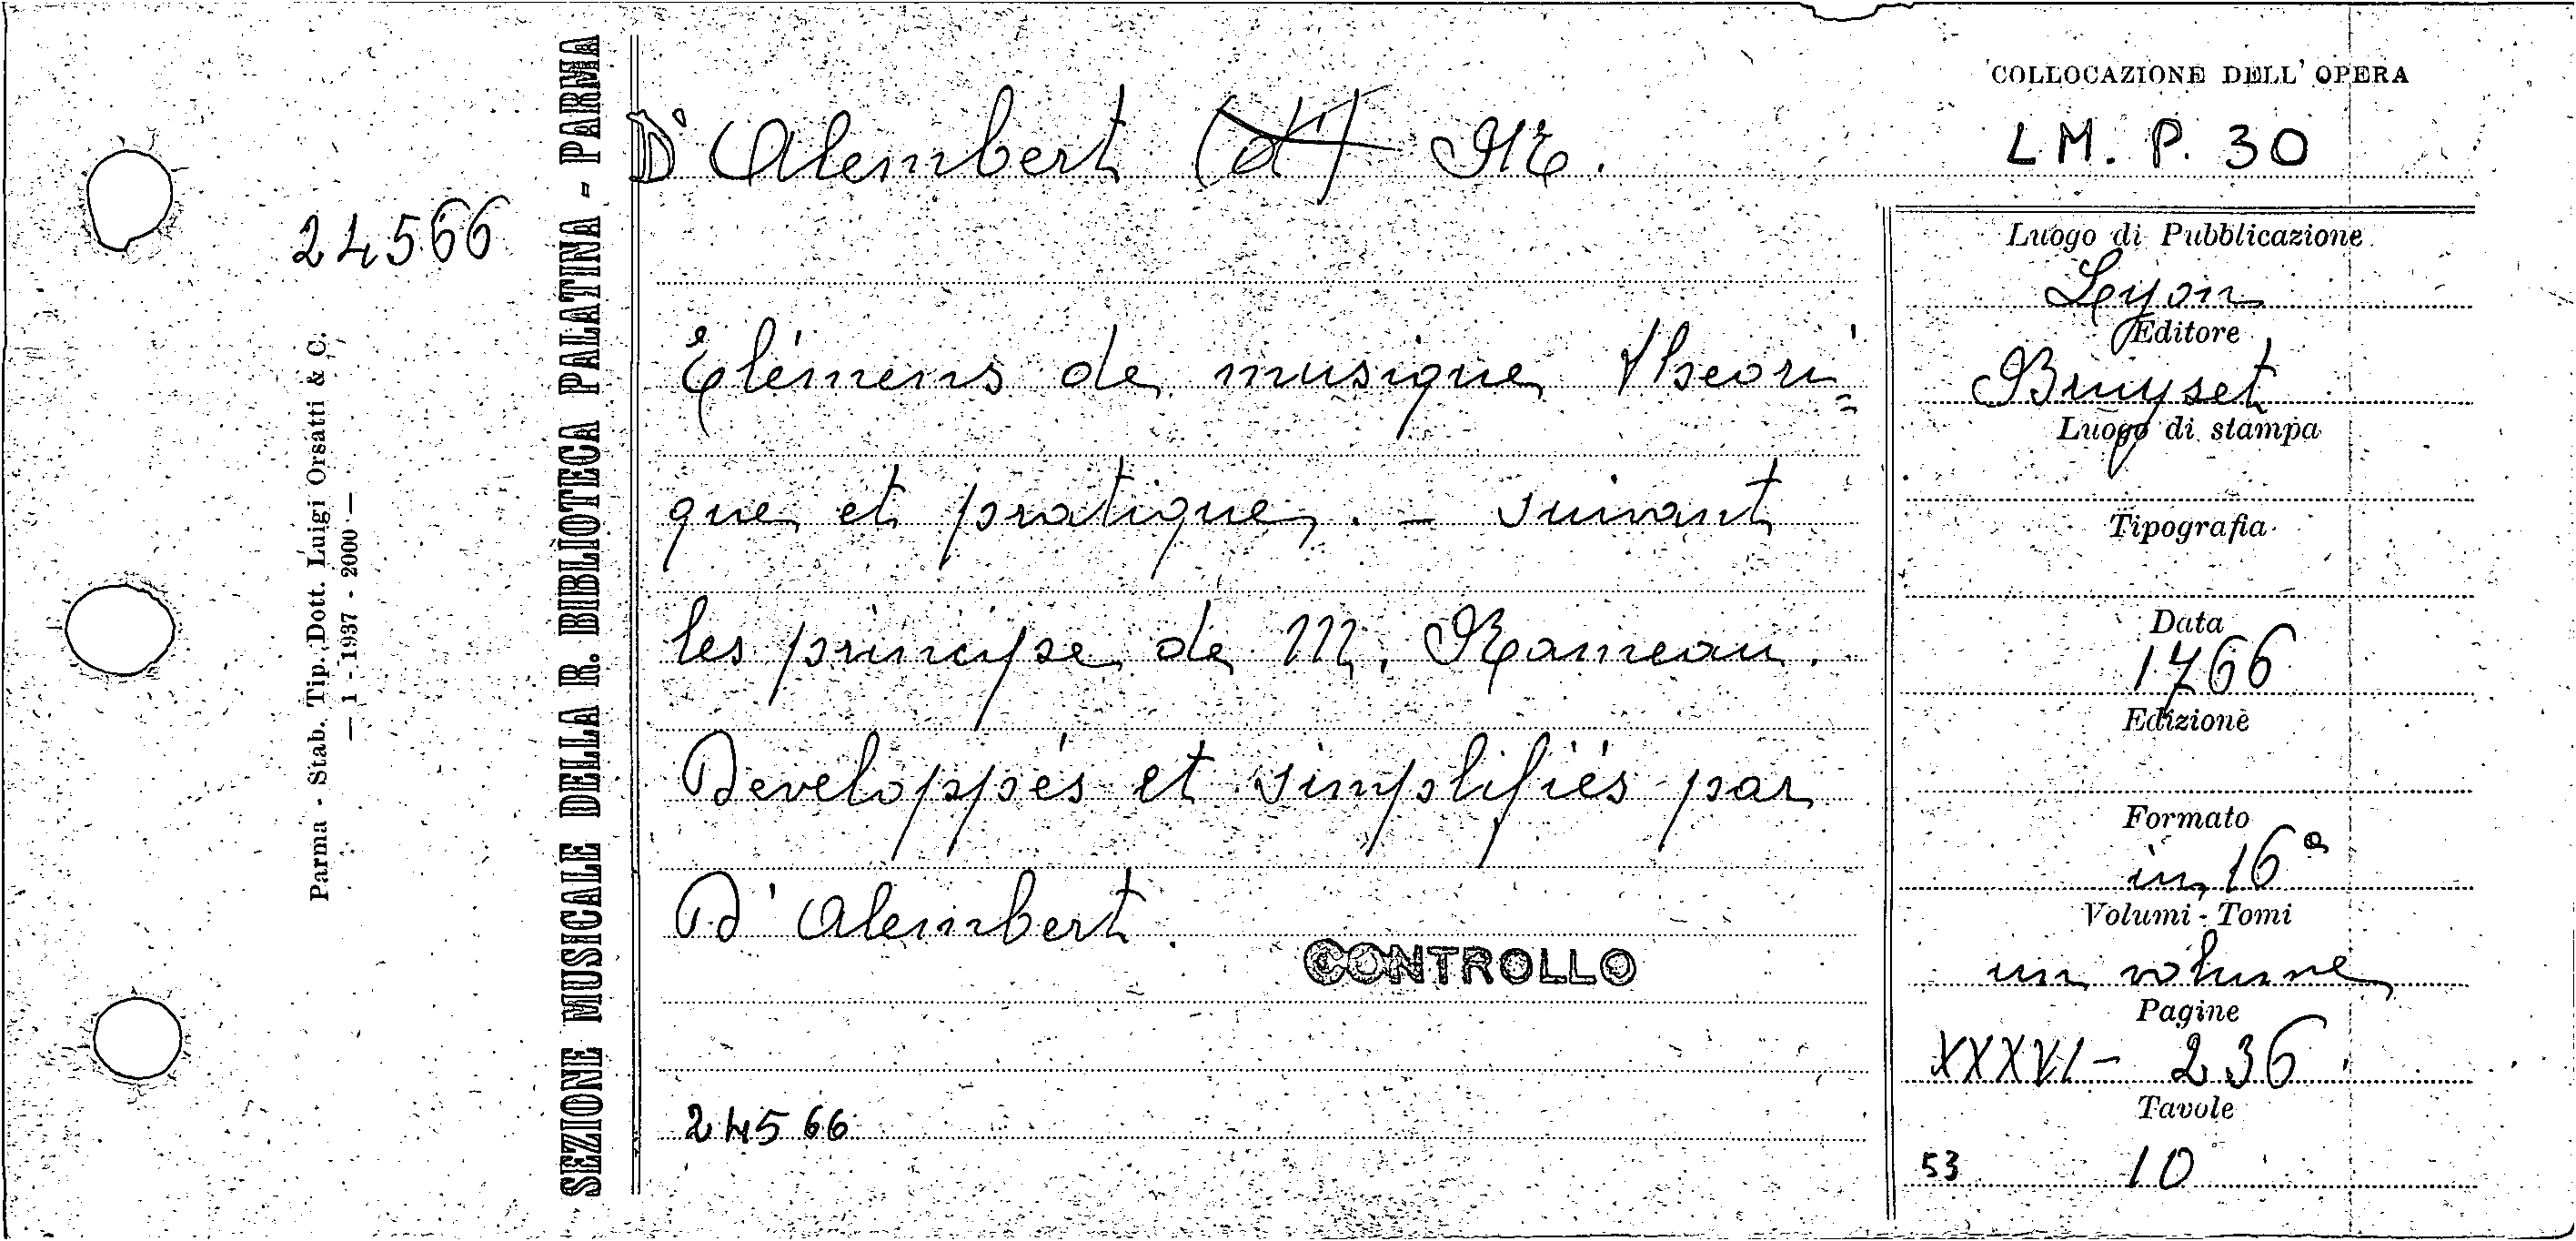 COLLOCAZIONE DELL' OPERA
L M. P. 30
D'Alembert (d')
24566
SEZIONE MUSICALE DELLA R. BIBLIOTECA PALATINA - PARMA
Parma - Stab. Tip. Dott. Luigi Orsatti & C.
— 1 - 1937 - 2000 —
Elémens de musique Theori=
que et pratique. - suivant
les principe de M. Rameau.
Developpés et simplifiés par
D' Alembert.
CONTROLLO
24566
Luogo di Pubblicazione
Lyon
Editore
Bruyset
Luogo di stampa
Tipografia
Data
1766
Edizione
Formato
in 16°
Volumi - Tomi
un volume
Pagine
XXXVI - 236
Tavole
53 10